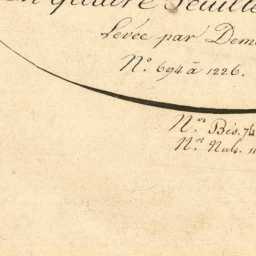 En quatre Feuille
Levée par Dem
N.º 694 à 1226.
N.os Bis. 74
N.os Nuls. 11